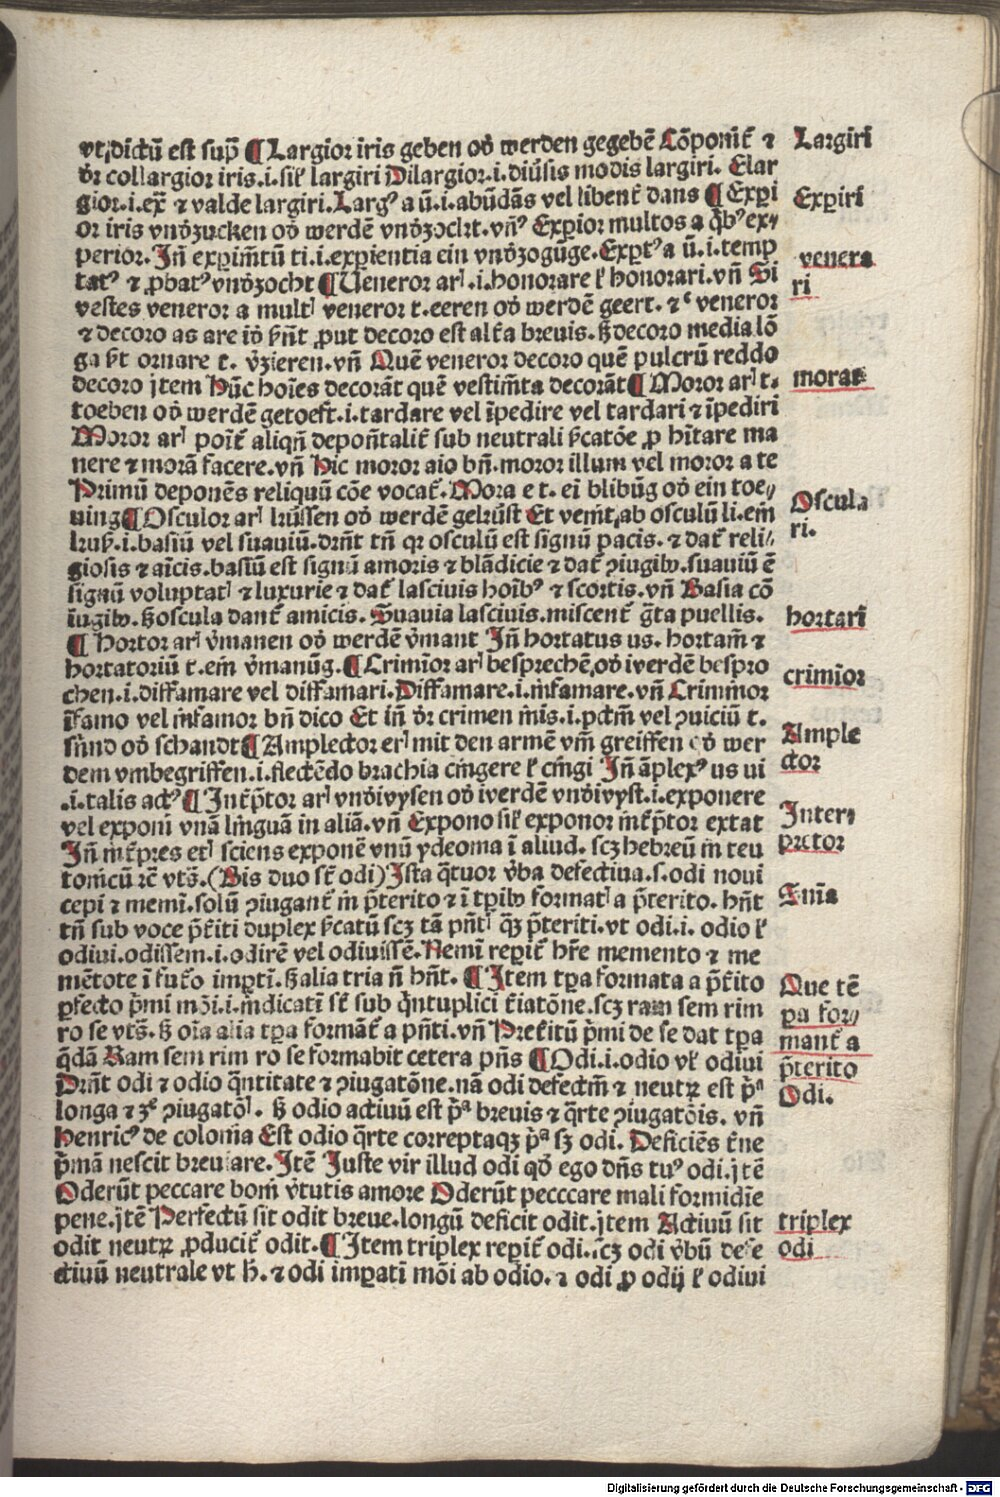 vt dictū est sup̄ ¶ Largior iris geben oḋ werden gegebē Cōponit̄ ⁊
Largiri
ḋr collargior iris.i.sil̕ largiri Dilargior.i.diūsis modis largiri. Elar
gior.i.ex̄ ⁊ valde largiri. Largꝰ a ū.i.abūdās vel libent̄ dans ¶ Exp̱i
Exp̱iri
or iris vnḋzucken oḋ werdē vnḋzocht.vnꝰ Exp̱ior multos a q̄bꝰ ex⸗
perior. Jn̄ exp̱im̄tū ti.i.exp̱ientia ein vnḋzogūge. Exp̱tꝰ a ū.i.temp̱
venera
tatꝰ ⁊ ꝓbatꝰ vnḋzocht ¶ Veneror arꝭ.i.honorare l̕ honorari.vn̄ Si
ri
vestes veneror a multꝭ veneror t.eeren oḋ werdē geert. ⁊ͨ veneror
⁊ decoro as are iḋ hn̄t ꝓut decoro est alt̄a breuis. ß decoro media lō
ga ht̄ ornare t. v̄zieren.vn̄ Quē veneror decoro quē pulcrū reddo
decoro jtem Hūc hoīes decorāt quē vestim̄ta decorāt ¶ Moror arꝭ t.
morar
toeben oḋ werdē getoeft.i.tardare vel īpedire vel tardari ⁊ īpediri
Moror arꝭ poit̄ aliqn̄ depon̄talit̄ sub neutrali hcatōe ꝓ hītare ma
nere ⁊ morā facere.vn̄ Hic moror aio bn̄.moror illum vel moror a te
Primū deponēs reliquū cōe vocat̄. Mora e t. ei blibūg oḋ ein toe⸗
uing ¶ Osculor arꝭ kussen oḋ werdē gekust Et vemt̄ ab osculū li.em̄
Oscula
ri.
kus̄.i.basiū vel suauiū.drn̄t tn̄ qr osculū est signū pacis. ⁊ dat̄ reli⸗
giosis ⁊ aīcis.basiū est signū amoris ⁊ blādicie ⁊ dat̄ ꝯiugibꝰ.suauiū ē
signū voluptatꝭ ⁊ luxurie ⁊ dat̄ lasciuis hoībꝰ ⁊ scortis.vn̄ Basia cō
iugibꝰ. ß oscula dant̄ amicis. Suauia lasciuis.miscent̄ g̃ta puellis.
¶ Hortor arꝭ v̄manen oḋ werdē v̄mant Jn̄ hortatus us. hortam̄ ⁊
hortari
hortatoriū t.em̄ v̄manūg. ¶ Crimīor arꝭ besprechē oḋ werdē bespro
crimīor
chen.i.diffamare vel diffamari. Diffamare.i.infamare.vn̄ Criminor
īfamo vel infamor bn̄ dico Et in̄ ḋr crimen inis.i.pctm̄ vel ꝯuiciū t.
sūnd oḋ schandt ¶ Amplector erꝭ mit den armē vm̄ greiffen oḋ wer
Ample
ctor
dem vmbegriffen.i.flectēdo brachia cingere l̕ cingi Jn̄ āplexꝰ us ui
.i.talis actꝰ ¶ Jnt̄p̄tor arꝭ vnḋwysen oḋ werdē vnḋwyst.i.exponere
Inter⸗
pretor
vel exponi vnā linguā in aliā.vn̄ Expono sil̕ exponor int̄p̄tor extat
Jn̄ int̄pres etꝭ sciens exponē vnū ydeoma ī aliud. scꝫ hebreū in teu
tonicū rē vtꝭ. (Bis duo st̄ odi) Jsta q̄tuor v̄ba defectiua.s.odi noui
Snīa
cepi ⁊ memī.solū ꝯiugant̄ in p̄terito ⁊ ī tp̱ibꝰ formatꝭ a p̄terito. hn̄t
tn̄ sub voce p̄t̄iti duplex hcatū scꝫ tā pn̄tꝭ qꝫ p̄teriti.vt odi.i. odio l̕
odiui.odissem.i.odirē vel odiuissē. Nemi rep̱it̄ hr̄e memento ⁊ me
mētote ī fut̄o imp̱ti. ß alia tria n̄ hn̄t. ¶ Jtem tp̱a formata a p̄t̄ito
Que tē
p̱a for⸗
p̱fecto p̄mi mōi.i.indicatī st̄ sub q̄ntuplici t̄iatōne.scꝫ ram sem rim
ro se vtꝭ. ß oīa alia tp̱a formāt̄ a pn̄ti.vn̄ Pret̄itū p̄mi de se dat tp̱a
mant̄ a
q̄dā Ram sem rim ro se formabit cetera pn̄s ¶ Odi.i.odio vl̕ odiui
p̄terito
Drn̄t odi ⁊ odio q̄ntitate ⁊ ꝯiugatōne.nā odi defectiū ⁊ neutꝝ est pͣ
Odi.
longa ⁊ 3ͤ ꝯiugatōꝭ. ß odio actiuū est pͣ breuis ⁊ q̄rte ꝯiugatōis. vn̄
Henricꝰ de colonia Est odio q̄rte correptaqꝫ pͣ sꝫ odi. Deficiēs t̄ne
p̄mā nescit breuiare. Jtē Juste vir illud odi qḋ ego dn̄s tuꝰ odi.jtē
Oderūt peccare boni v̄tutis amore Oderūt pecccare mali formidīe
pene.jtē Perfectū sit odit breue.longū deficit odit.jtem Actiuū sit
triplex
odit neutꝝ ꝓducit̄ odit. ¶ Jtem triplex rep̱it̄ odi.scꝫ odi v̄bū defe
odi
ctiuū neutrale vt h̄. ⁊ odi imp̱ati mōi ab odio. ⁊ odi ꝓ odij l̕ odiui
Digitalisierung gefördert durch die Deutsche Forschungsgemeinschaft - DFG